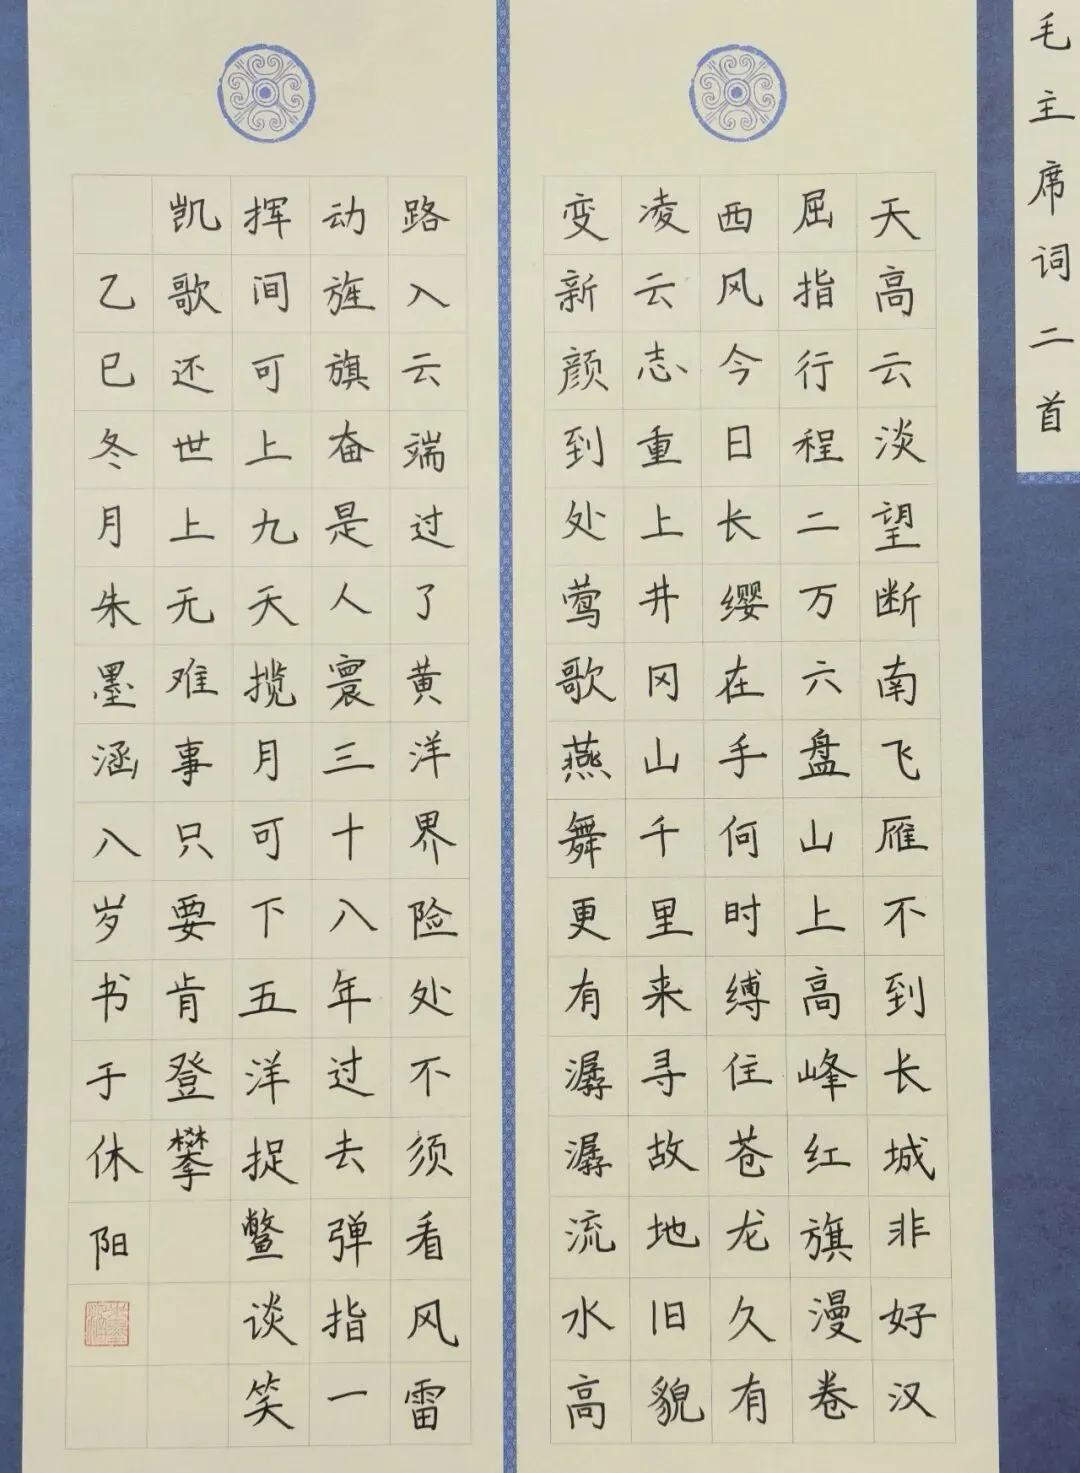 毛主席词二首
天高云淡望断南飞雁不到长城非好汉
屈指行程二万六盘山上高峰红旗漫卷
西风今日长缨在手何时缚住苍龙久有
凌云志重上井冈山千里来寻故地旧貌
变新颜到处莺歌燕舞更有潺潺流水高
路入云端过了黄洋界险处不须看风雷
动旌旗奋是人寰三十八年过去弹指一
挥间可上九天揽月可下五洋捉鳖谈笑
凯歌还世上无难事只要肯登攀
乙巳冬月朱墨涵八岁书于休阳